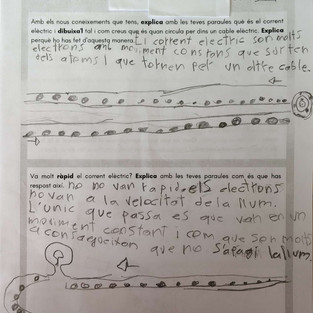 Amb els nous coneixements que tens, explica amb les teves paraules què és el corrent
elèctric i dibuixa'l tal i com creus que és quan circula per dins un cable elèctric. Explica
perquè ho has fet d'aquesta manera. El corrent electric son molts
electrons amb moviment constans que surten
dels atoms I que tornen per un altre cable.
Va molt ràpid el corrent elèctric? Explica amb les teves paraules com és que has
respost així. no no van rapid els electrons
no van a la velocitat de la llum.
L'unic que passa es que van en un
moviment constant i com que son molts
aconsegueixen que no s'apagi la llum.